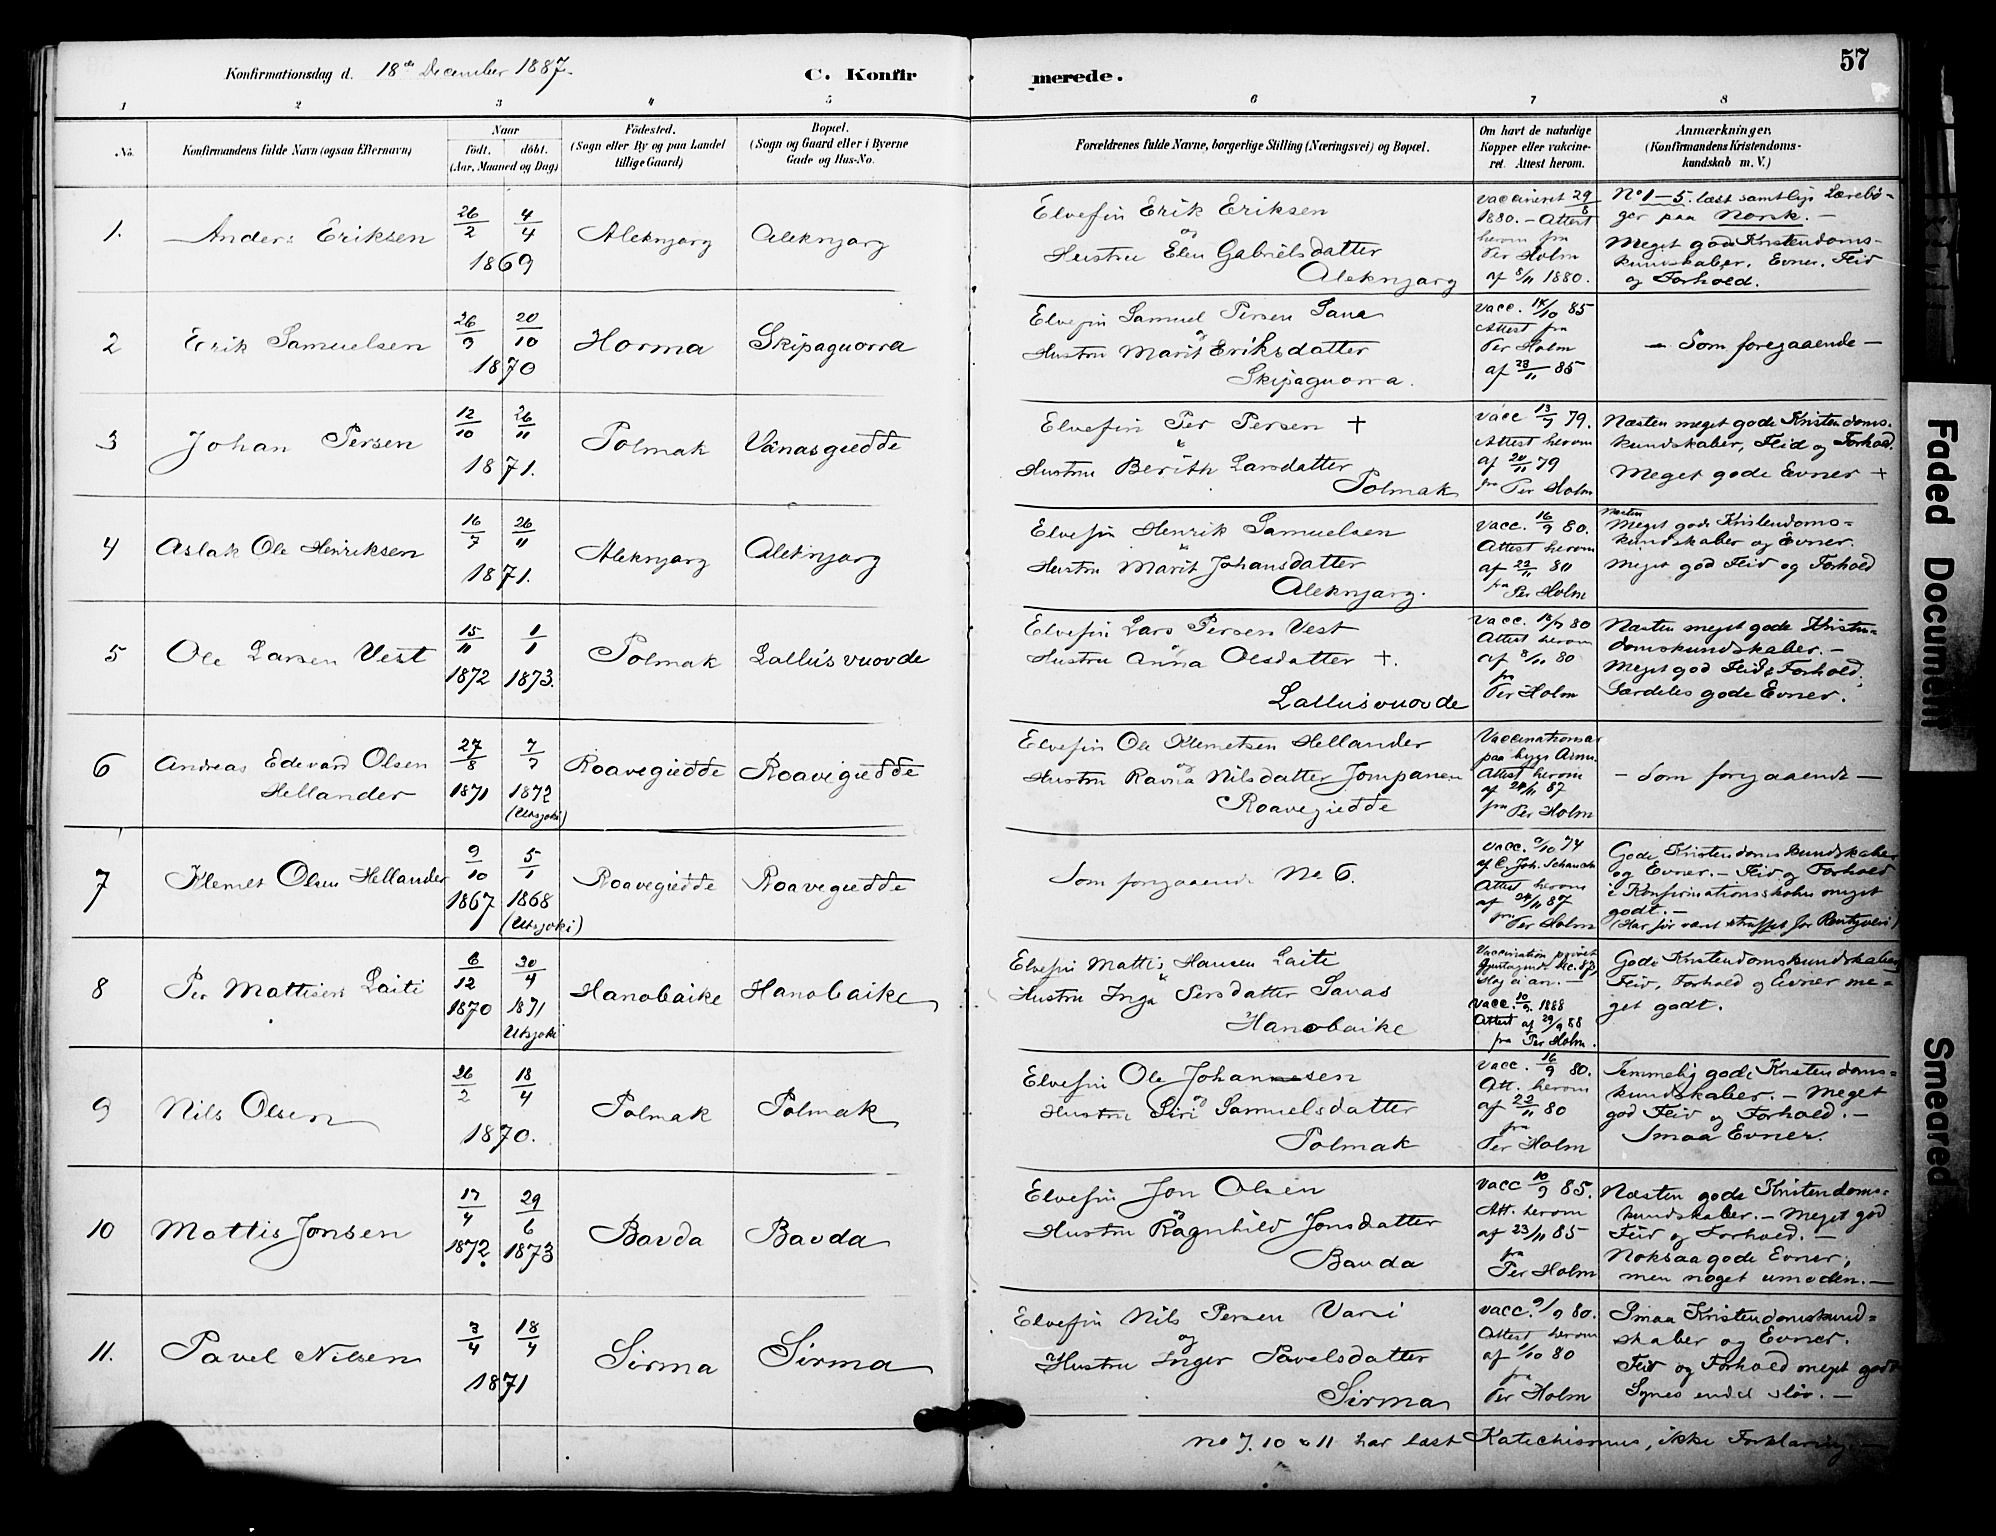 57
Konfirmationsdag d. 18de December 1887.
C. Konfirmerede.
1 2 3 4 5 6 7 8
No.
Konfirmandens fulde Navn (ogsaa Efternavn)
Naar
født. døbt.
(Aar, Maaned og Dag)
Födested.
(Sogn eller By og paa Landet
tillige Gaard)
Bopæl.
(Sogn og Gaard eller i Byerne
Gade og Hus-No.
Forældrenes fulde Navne, borgerlige Stilling (Næringsvei) og Bopæl.
Om havt de naturlige
Kopper eller vakcine-
ret. Attest herom.
Anmærkninger.
(Konfirmandens Kristendoms-
kundskab m. V.)
1. Anders Eriksen 26/2 4/4 1869 Aleknjarg Aleknjarg
Elvefin Erik Eriksen
og
Hustru Elen Gabrielsdatter
Aleknjarg
vaccineret 29/8
1880. - Attest
herom fra
Per Holm
af 8/11 1880.
No 1-5. læst samtlige Lærebø-
ger paa Norsk. -
Meget gode Kristendoms-
kundskaber. Evner. Flid
og Forhold.
2 Erik Samuelsen 26/9 20/10 1870 Horma Skipaguorra
Elvefin Samuel Persen
og
Hustru Marit Eriksdatter
Skipaguorra.
vacc. 14/10 85
Attest fra
Per Holm
af 23/11 85
- Som foregaaende -
3 Johan Persen 12/10 26/11 1871. Polmak Vänasgiedde
Elvefin Per Persen +
Hustru Berith Larsdatter
Polmak
vacc 13/9 79.
Attest herom
af 20/11 79
fra Per Holm
Næsten meget gode Kristendoms-
kundskaber, Flid og Forhold.
Meget gode Evner +
4 Aslak Ole Henriksen 16/7 26/11 1871. Aleknjarg Aleknjarg
Elvefin Henrik Samuelsen
Hustru Marit Johansdatter
Aleknjarg.
vacc. 16/9 80.
Attest herom
af 22/11 80
fra Per Holm
Næsten
Meget gode Kristendoms-
kundskaber og Evner.
Meget god Flid og Forhold
5 Ole Larsen Vest 15/11 1/1 1872 1873. Polmak Lallusvuovde
Elvefin Lars Persen Vest
Hustru Anna Olsdatter +.
Lallusvuovde
vacc. 80
Attest herom
af 8/11 80
fra
Per Holm
Næsten meget gode Kristen-
domskundskaber. -
Meget god Flid & Forhold.
Særdeles gode Evner.
6 Andreas Edevard Olsen
Hellander 27/8 7/7 1871 1872 (Utsjoki) Roavegiedde Roavegiedde
Elvefin Ole Klemetsen Hellander
og
Hustru Ravna Nilsdatter Jompanen
Roavegiedde
Vaccinationsar
paa
Attest herom
af 24/11 87
fra Per Holm
- Som foregaaende -
7 Klemet Olsen Hellander 9/10 5/1 1867 1868 (Utsjoki) Roavegiedde Roavegiedde
Som foregaaende No 6.
vacc. 9/10 74
af C. Joh. Schanche
Attest herom
af 24/11 87
fra
Per Holm
Gode Kristendomskundskaber
og Evner. - Flid og Forhold
i Konfirmationsskolen meget
godt. -
(Har før været straffet for Rentyveri)
8 Per Mattisen Laiti 6/12 30/4 1870 1871 Utsjoki Hanobaike Hanobaike
Elvefin Mattis Hansen Laiti
Hustru Inga Persdatter
Hanobaike
Vaccination
vacc. 10/9 1888
Attest af 29/9 88
fra Per Holm.
Gode Kristendomskundskaber,
Flid, Forhold og Evner me-
get godt.
9 Nils Olsen 26/2 18/4 1870. Polmak Polmak
Elvefin Ole Johannesen
og
Hustru Siri Samuelsdatter
Polmak
vacc. 16/9 80.
Att. herom
af 22/11 80
fra
Per Holm
Temmelig gode Kristendoms-
kundskaber. - Meget
god Flid og Forhold. -
Smaa Evner.
10 Mattis Jonsen 17/4 29/6 1872. 1873 Bavda Bavda
Elvefin Jon Olsen
og
Hustru Ragnhild Jonsdatter
Bavda
vacc 10/9 85.
Att. herom
af 23/11 85
fra
Per Holm
Næsten gode Kristendoms-
kundskaber. - Meget god
Flid og Forhold. -
Noksaa gode Evner,
men noget umoden. -
11. Pavel Nilsen 3/4 18/4 1871 Sirma Sirma
Elvefin Nils Persen Varsi
og
Hustru Inger Pavelsdatter
Sirma
vacc. 9/9 80.
Attest herom
af 1/10 80
fra
Per Holm
Smaa Kristendomskund-
skaber og Evner.
Flid og Forhold meget godt
Synes endel sløv. -
No 7. 10 & 11 har læst Katechismus, ikke Forklaring. -
Faded Document
Smeared